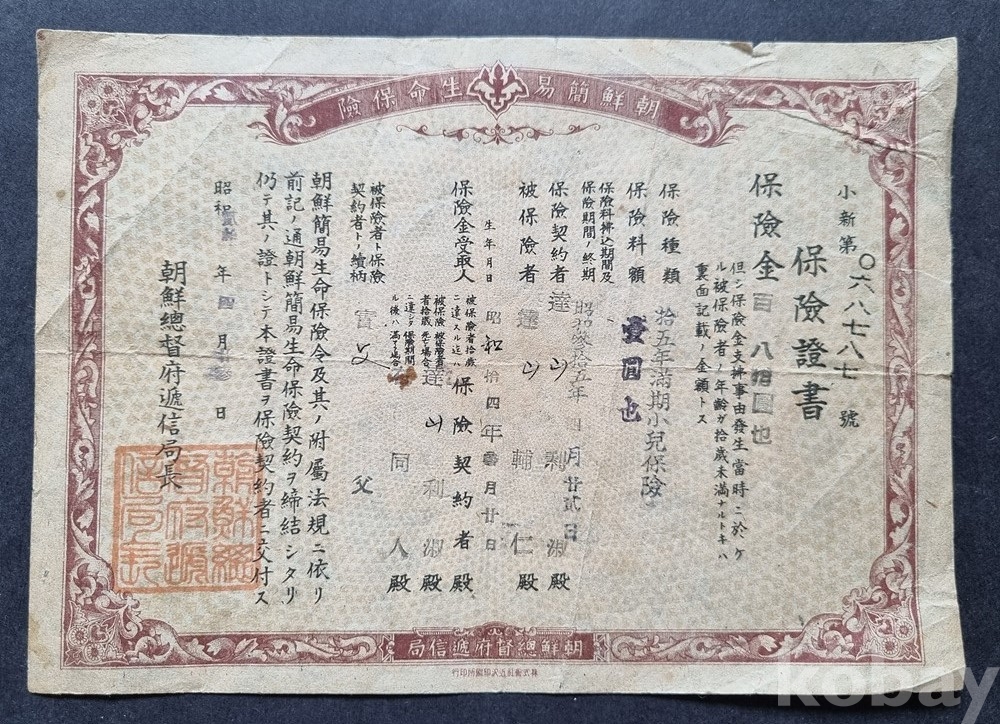 朝鮮簡易生命保險
小新第〇六八七八七號
保險證書
保險金百八拾圓也
但シ保險金支拂事由發生當時ニ於ケ
ル被保險者ノ年齡ガ拾歲未滿ナルトキハ
裏面記載ノ金額トス
保險種類 拾五年滿期小兒保險
保險料額 壹圓也
保險料拂込期間及
保險期間ノ終期 昭和參拾五年 四月廿貳日
保險契約者 達山利淑殿
被保險者 達山輔仁殿
生年月日 昭和拾四年 月廿日
保險金受取人
被保險者拾歲
ニ達スル迄ハ 保險契約者殿
被保險者
者拾歲
ニ達シタ
ル後ハ
被保險者
死亡ノ場合 達山利淑殿
保險期間
滿了ノ場合 同人殿
被保險者ト保險
契約者トノ續柄 實父 父
朝鮮簡易生命保險令及其ノ附屬法規ニ依リ
前記ノ通朝鮮簡易生命保險契約ヲ締結シタリ
仍テ其ノ證トシテ本證書ヲ保險契約者ニ交付ス
昭和 年四月 日
朝鮮總督府遞信局長
朝鮮總督府遞信局
kobay